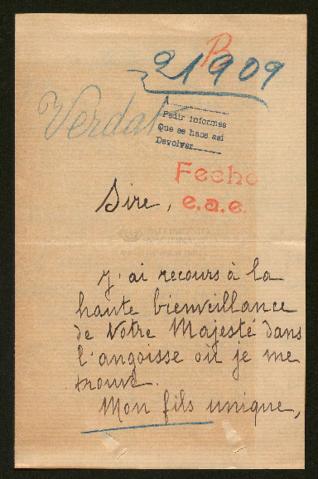 B
21909
Verdat
A
Pedir informes
Que se hace así
Devolver
Fecho
e.a.e.
Sire,
J'ai recours à la
haute bienveillance
de Votre Majesté dans
l'angoisse où je me
trouve.
Mon fils unique,